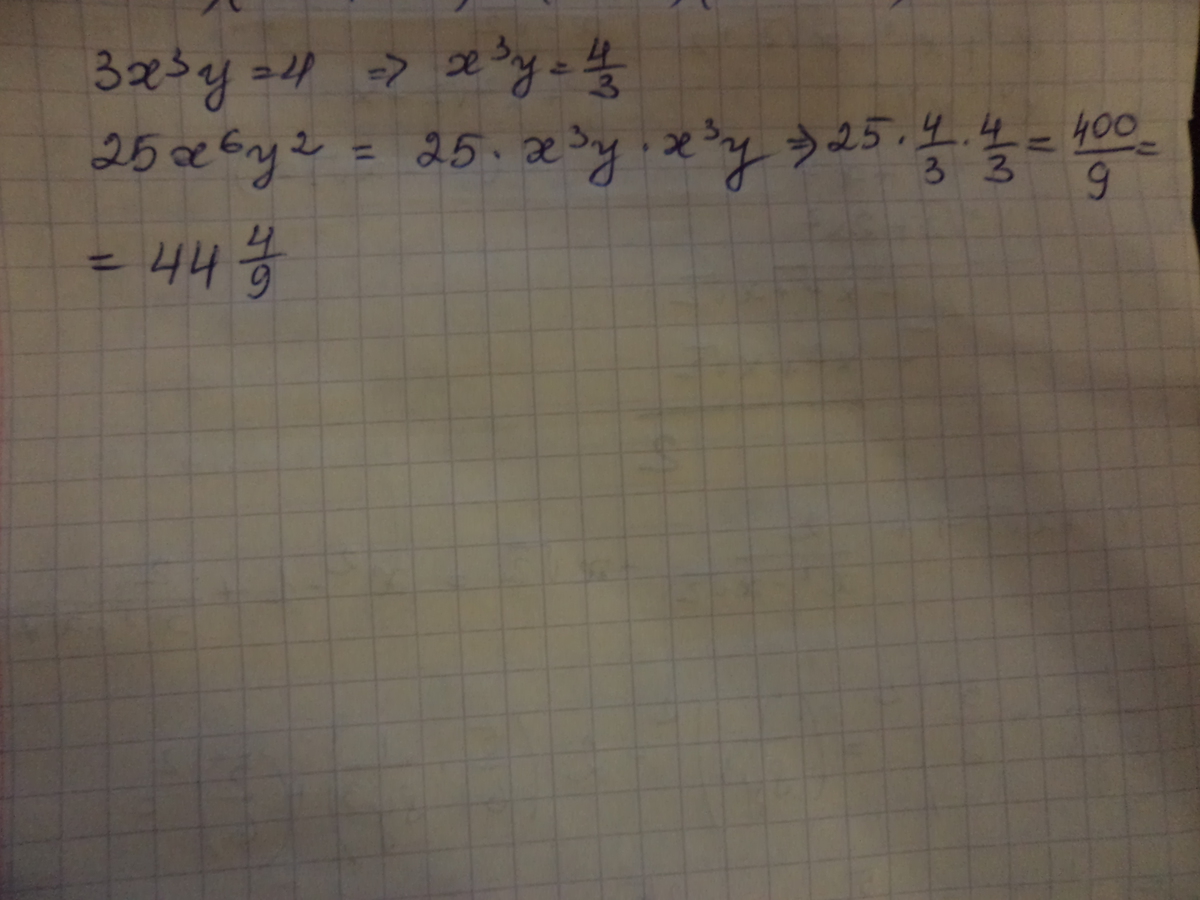 3x³y = 4 ⇒ x³y = 4/3
25x⁶y² = 25 · x³y · x³y ⇒ 25 · 4/3 · 4/3 = 400/9 =
= 44 4/9